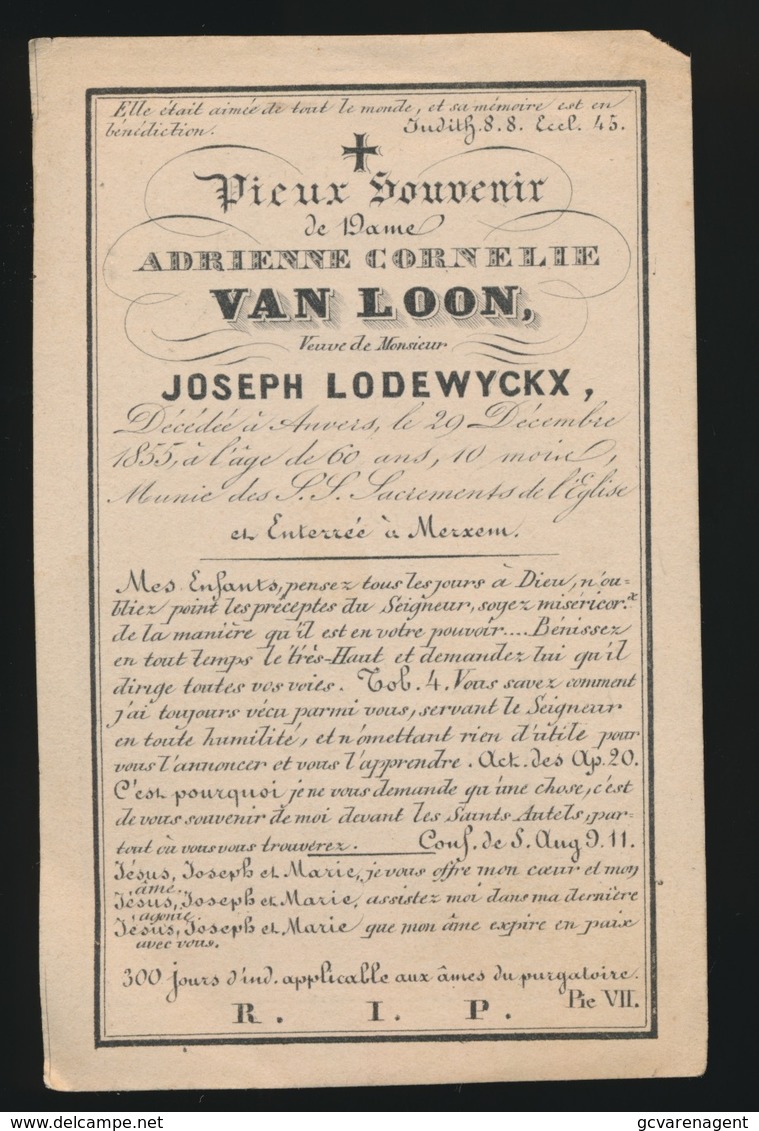 Elle était aimée de tout le monde, et sa mémoire est en
bénédiction. Judith. 8. 8. Eccl. 45.
Pieux Souvenir
de Dame
ADRIENNE CORNELIE
VAN LOON,
Veuve de Monsieur
JOSEPH LODEWYCKX,
Décédée à Anvers, le 29 Décembre
1855, à l'âge de 60 ans, 10 mois,
Munie des S.S. Sacrements de l'Eglise
et Enterrée à Merxem.
Mes Enfants, pensez tous les jours à Dieu, n'ou-
bliez point les préceptes du Seigneur, soyez miséricor.x
de la manière qu'il est en votre pouvoir.... Bénissez
en tout temps le très-Haut et demandez lui qu'il
dirige toutes vos voies. Tob. 4. Vous savez comment
j'ai toujours vécu parmi vous, servant le Seigneur
en toute humilité, et n'omettant rien d'utile pour
vous l'annoncer et vous l'apprendre. Act. des Ap. 20.
C'est pourquoi je ne vous demande qu'une chose, c'est
de vous souvenir de moi devant les Saints Autels, par-
tout où vous vous trouverez. Conf. de S. Aug 9. 11.
Jésus, Joseph et Marie, je vous offre mon cœur et mon
âme.
Jésus, Joseph et Marie, assistez moi dans ma dernière
agonie.
Jésus, Joseph et Marie que mon âme expire en paix
avec vous.
300 jours d'ind. applicable aux âmes du purgatoire.
Pie VII.
R. I. P.
delcampe.net
gcvarenagent